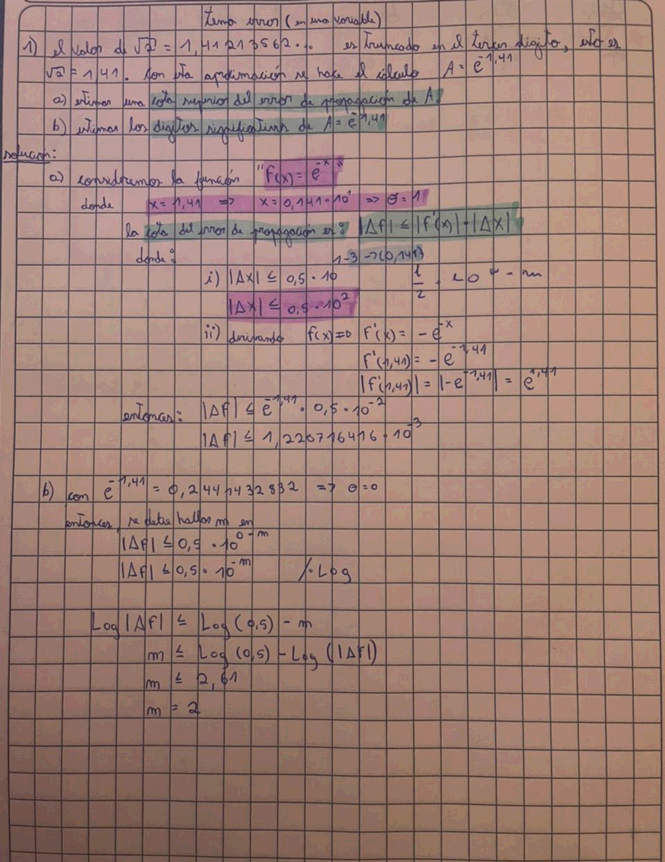 Tema error (en una variable)
1) el valor de √2 = 1,41213562... es truncado en el tercer digito, esto es
√2 = 1,41. Con esta aproximación se hace el cálculo A = e^-1,41
a) estimar una cota superior del error de propagación de A.
b) estimar los digitos significativos de A = e^-1,41
solucion:
a) consideremos la función "f(x) = e^-x"
donde x = 1,41 => x = 0,141·10^1 => σ = 1
la cota del error de propagación es: |Δf| ≤ |f'(x)|·|Δx|
donde: 1-3 -> (0,141)
i) |Δx| ≤ 0,5·10 1/2 · 10^σ - m
|Δx| ≤ 0,5·10^2
ii) derivando f(x)=0 f'(x) = -e^-x
f'(1,41) = -e^-1,41
|f'(1,41)| = |-e^-1,41| = e^1,41
entonces: |Δf| ≤ e^-1,41 · 0,5·10^-2
|Δf| ≤ 1,220716416·10^-3
b) con e^-1,41 = 0,2441432832 => σ=0
entonces, se debe hallar m en
|Δf| ≤ 0,5·10^0-m
|Δf| ≤ 0,5·10^-m /·Log
Log|Δf| ≤ Log(0,5) - m
m ≤ Log(0,5) - Log(|Δf|)
m ≤ 2,61
m = 2